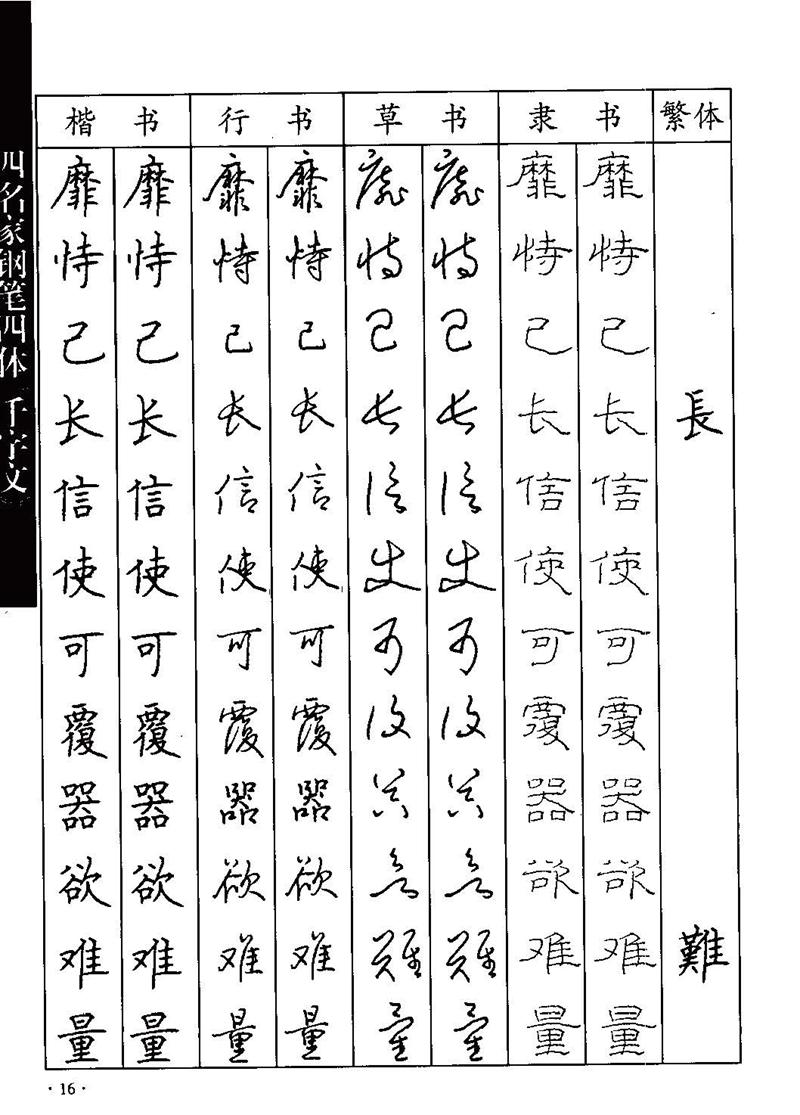 四名家钢笔四体 千字文
楷书 行书 草书 隶书 繁体
靡 靡 靡 靡 靡 靡 靡 靡
恃 恃 恃 恃 恃 恃 恃 恃
己 己 己 己 己 己 己 己
长 长 长 长 长 长 长 长 長
信 信 信 信 信 信 信 信
使 使 使 使 使 使 使 使
可 可 可 可 可 可 可 可
覆 覆 覆 覆 覆 覆 覆 覆
器 器 器 器 器 器 器 器
欲 欲 欲 欲 欲 欲 欲 欲
难 难 难 难 难 难 难 难 難
量 量 量 量 量 量 量 量
·16·